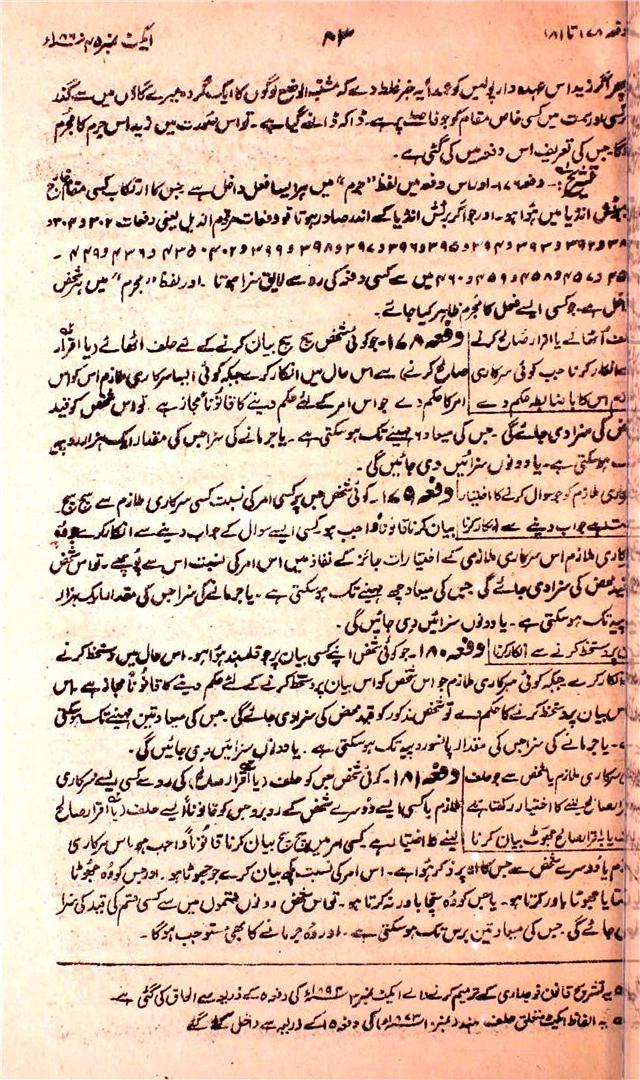 دفعہ ۱۷۸ تا ۱۸۱
۸۳
ایکٹ نمبر ۴۵ ۱۸۶۰ء
پھر اگر زید اس عہدہ دار پولیس کو عمداً یہ خبر غلط دے کہ مشتبہ الوضع لوگوں کا ایک گروہ میرے گاؤں میں سے گذر
کسی اور سمت میں کسی خاص مقام کو جو فاصلہ پر ہے۔ ڈاکہ ڈالنے گیا ہے۔ تو اس صورت میں زید اس جرم کا مجرم
ہوگا۔ جس کی تعریف اس دفعہ میں کی گئی ہے۔
تشریح:۔ دفعہ ۱۷۶۔ اور اس دفعہ میں لفظ "جرم" میں ہر ایسا فعل داخل ہے جس کا ارتکاب کسی مقام خارج
برٹش انڈیا میں ہوا ہو۔ اور جو اگر برٹش انڈیا کے اندر صادر ہوتا تو دفعات مرقوم الذیل یعنی دفعات ۳۰۲ و ۳۰۴ و
۳۸۲ و ۳۹۲ و ۳۹۳ و ۳۹۴ و ۳۹۵ و ۳۹۶ و ۳۹۷ و ۳۹۸ و ۳۹۹ و ۴۰۲ و ۴۳۵ و ۴۳۶ و ۴۴۹ ۔
۴۵۰ و ۴۵۷ و ۴۵۸ و ۴۵۹ و ۴۶۰ میں سے کسی دفعہ کی رو سے لایق سزا ہوتا ۔ اور لفظ "مجرم" میں ہر شخص
داخل ہے۔ جو کسی ایسے فعل کا مجرم ظاہر کیا جائے۔
حلف اُٹھانے یا اقرار صالح کرنے دفعہ ۱۷۸۔ جو کوئی شخص سچ سچ بیان کرنے کے لئے حلف اٹھانے (یا اقرار
سے انکار کرنا جب کوئی سرکاری صالح کرنے) سے اس حال میں انکار کرے جبکہ کوئی ایسا سرکاری ملازم اس کو اس
ملازم اس کا باضابطہ حکم دے امر کا حکم دے جو اس امر کے لئے حکم دینے کا قانوناً مجاز ہے۔ تو اس شخص کو قید
محض کی سزا دی جائے گی۔ جس کی میعاد ۶ مہینے تک ہو سکتی ہے۔ یا جرمانے کی سزا جس کی مقدار ایک ہزار روپیہ
تک ہو سکتی ہے۔ یا دونوں سزائیں دی جائیں گی۔
سرکاری ملازم کو جو سوال کرنے کا اختیار دفعہ ۱۷۹۔ کوئی شخص جس پر کسی امر کی نسبت کسی سرکاری ملازم سے سچ سچ
رکھتا ہے جواب دینے سے انکار کرنا بیان کرنا قانوناً واجب ہو کسی ایسے سوال کے جواب دینے سے انکار کرے جو وہ
سرکاری ملازم اس سرکاری ملازمی کے اختیارات جائز کے نفاذ میں اس امر کی نسبت اس سے پوچھے۔ تو اس شخص
کو قید محض کی سزا دی جائے گی جس کی میعاد چھ مہینے تک ہو سکتی ہے۔ یا جرمانے کی سزا جس کی مقدار ایک ہزار
روپیہ تک ہو سکتی ہے۔ یا دونوں سزائیں دی جائیں گی۔
بیان پر دستخط کرنے سے انکار کرنا دفعہ ۱۸۰۔ جو کوئی شخص اپنے کسی بیان پر جو قلمبند ہوا ہو۔ اس حال میں دستخط کرنے
سے انکار کرے جبکہ کوئی سرکاری ملازم جو اس شخص کو اس بیان پر دستخط کرنے کے لئے حکم دینے کا قانوناً مجاز ہے۔ اس
کو اس بیان پر دستخط کرنے کا حکم دے تو شخص مذکور کو قید محض کی سزا دی جائے گی۔ جس کی میعاد تین مہینے تک ہو سکتی
ہے۔ یا جرمانے کی سزا جس کی مقدار پانسو روپیہ تک ہو سکتی ہے۔ یا دونوں سزائیں دی جائیں گی۔
سرکاری ملازم یا شخص سے جو حلف دفعہ ۱۸۱۔ کوئی شخص جس کو حلف (یا اقرار صالح) کی رو سے کسی ایسے سرکاری
یا اقرار صالح لینے کا اختیار رکھتا ہے ملازم یا کسی ایسے دوسرے شخص کے روبرو جس کو قانوناً ایسے حلف (یا اقرار صالح)
حلف یا اقرار صالح جھوٹ بیان کرنا لینے کا اختیار ہے کسی امر میں سچ سچ بیان کرنا قانوناً واجب ہو اس سرکاری
ملازم یا دوسرے شخص سے جس کا اوپر ذکر ہوا ہے۔ اس امر کی نسبت کچھ بیان کرے جو جھوٹا ہو۔ اور جس کو وہ جھوٹا
جانتا یا جھوٹا باور کرتا ہو۔ یا جس کو وہ سچا باور نہ کرتا ہو۔ تو اس شخص دونوں قسموں میں سے کسی قسم کی قید کی سزا
دی جائے گی۔ جس کی میعاد تین برس تک ہو سکتی ہے۔ اور وہ جرمانے کا بھی مستوجب ہوگا۔
یہ تشریح قانون فوجداری کے ترمیم کرنے والے ایکٹ نمبر ۳ ۱۸۹۴ء کی دفعہ ۵ کے ذریعہ سے الحاق کی گئی ہے۔
یہ الفاظ ایکٹ متعلق حلف ہند نمبر ۱۰ ۱۸۷۳ء کی دفعہ ۱۵ کے ذریعہ سے داخل کئے گئے